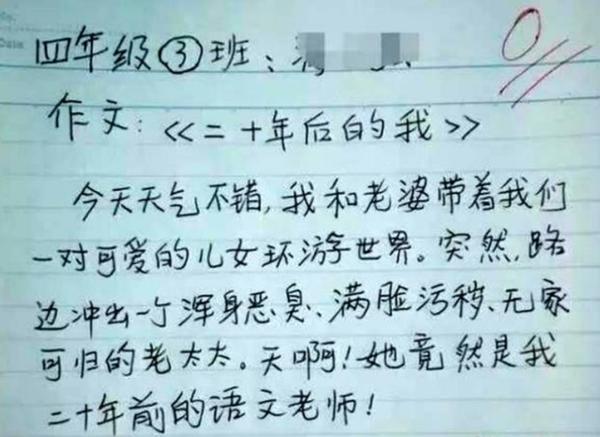 Date
四年级③班:
0
作文:《二十年后的我》
今天天气不错,我和老婆带着我们
一对可爱的儿女环游世界。突然,路
边冲出一个浑身恶臭、满脸污秽、无家
可归的老太太。天啊!她竟然是我
二十年前的语文老师!